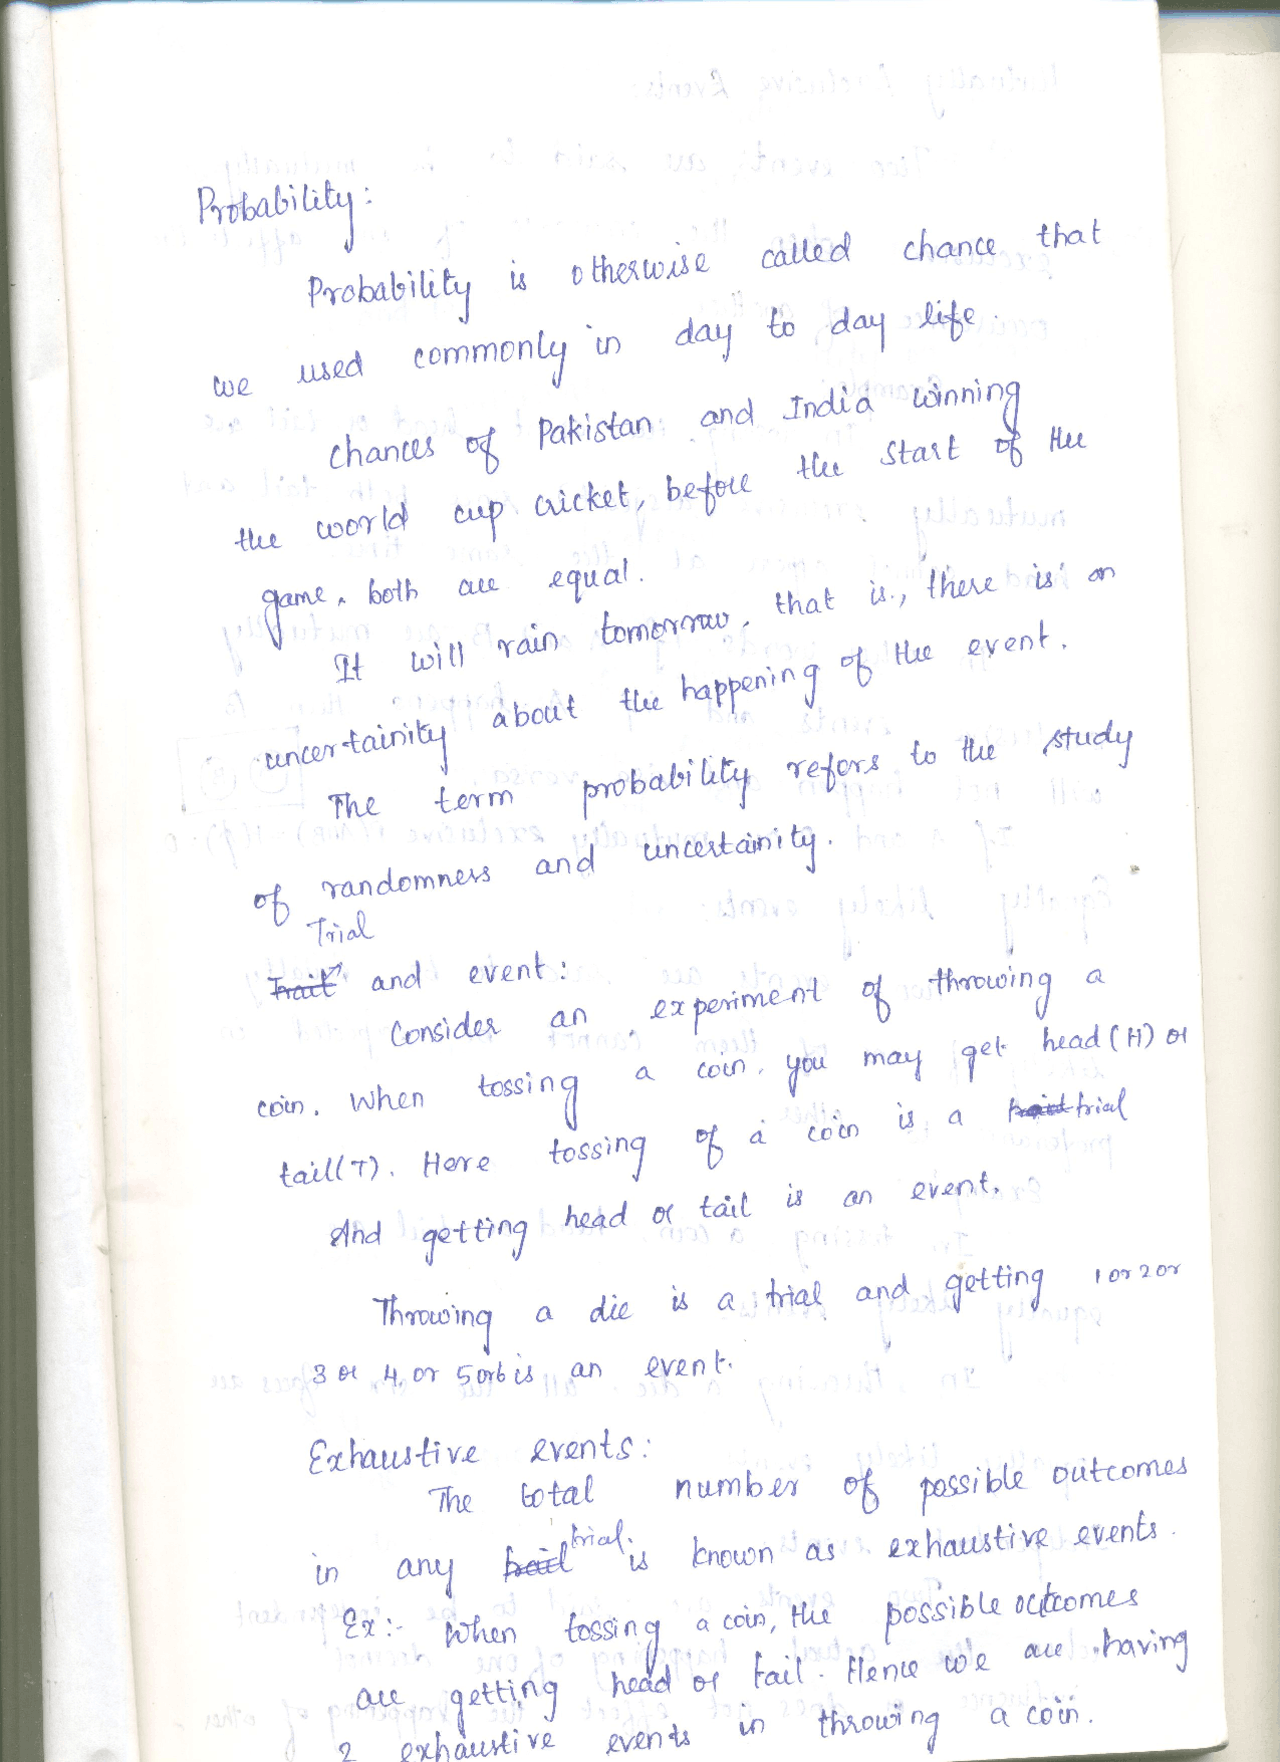 Probability:
Probability is otherwise called chance that
we used commonly in day to day life.
Chances of Pakistan and India winning
the world cup cricket, before the start of the
game, both are equal.
It will rain tomorrow, that is., there is an
uncertainity about the happening of the event.
The term probability refers to the study
of randomness and uncertainity.
Trial
Trait and event:
Consider an experiment of throwing a
coin. When tossing a coin, you may get head (H) or
tail(T). Here tossing of a coin is a trait trial
And getting head or tail is an event.
Throwing a die is a trial and getting 1 or 2 or
3 or 4, or 5 or 6 is an event.
Exhaustive events:
The total number of possible outcomes
in any trail trial. is known as exhaustive events.
Ex:- When tossing a coin, the possible outcomes
are getting head or tail. Hence we are having
2 exhaustive events in throwing a coin.